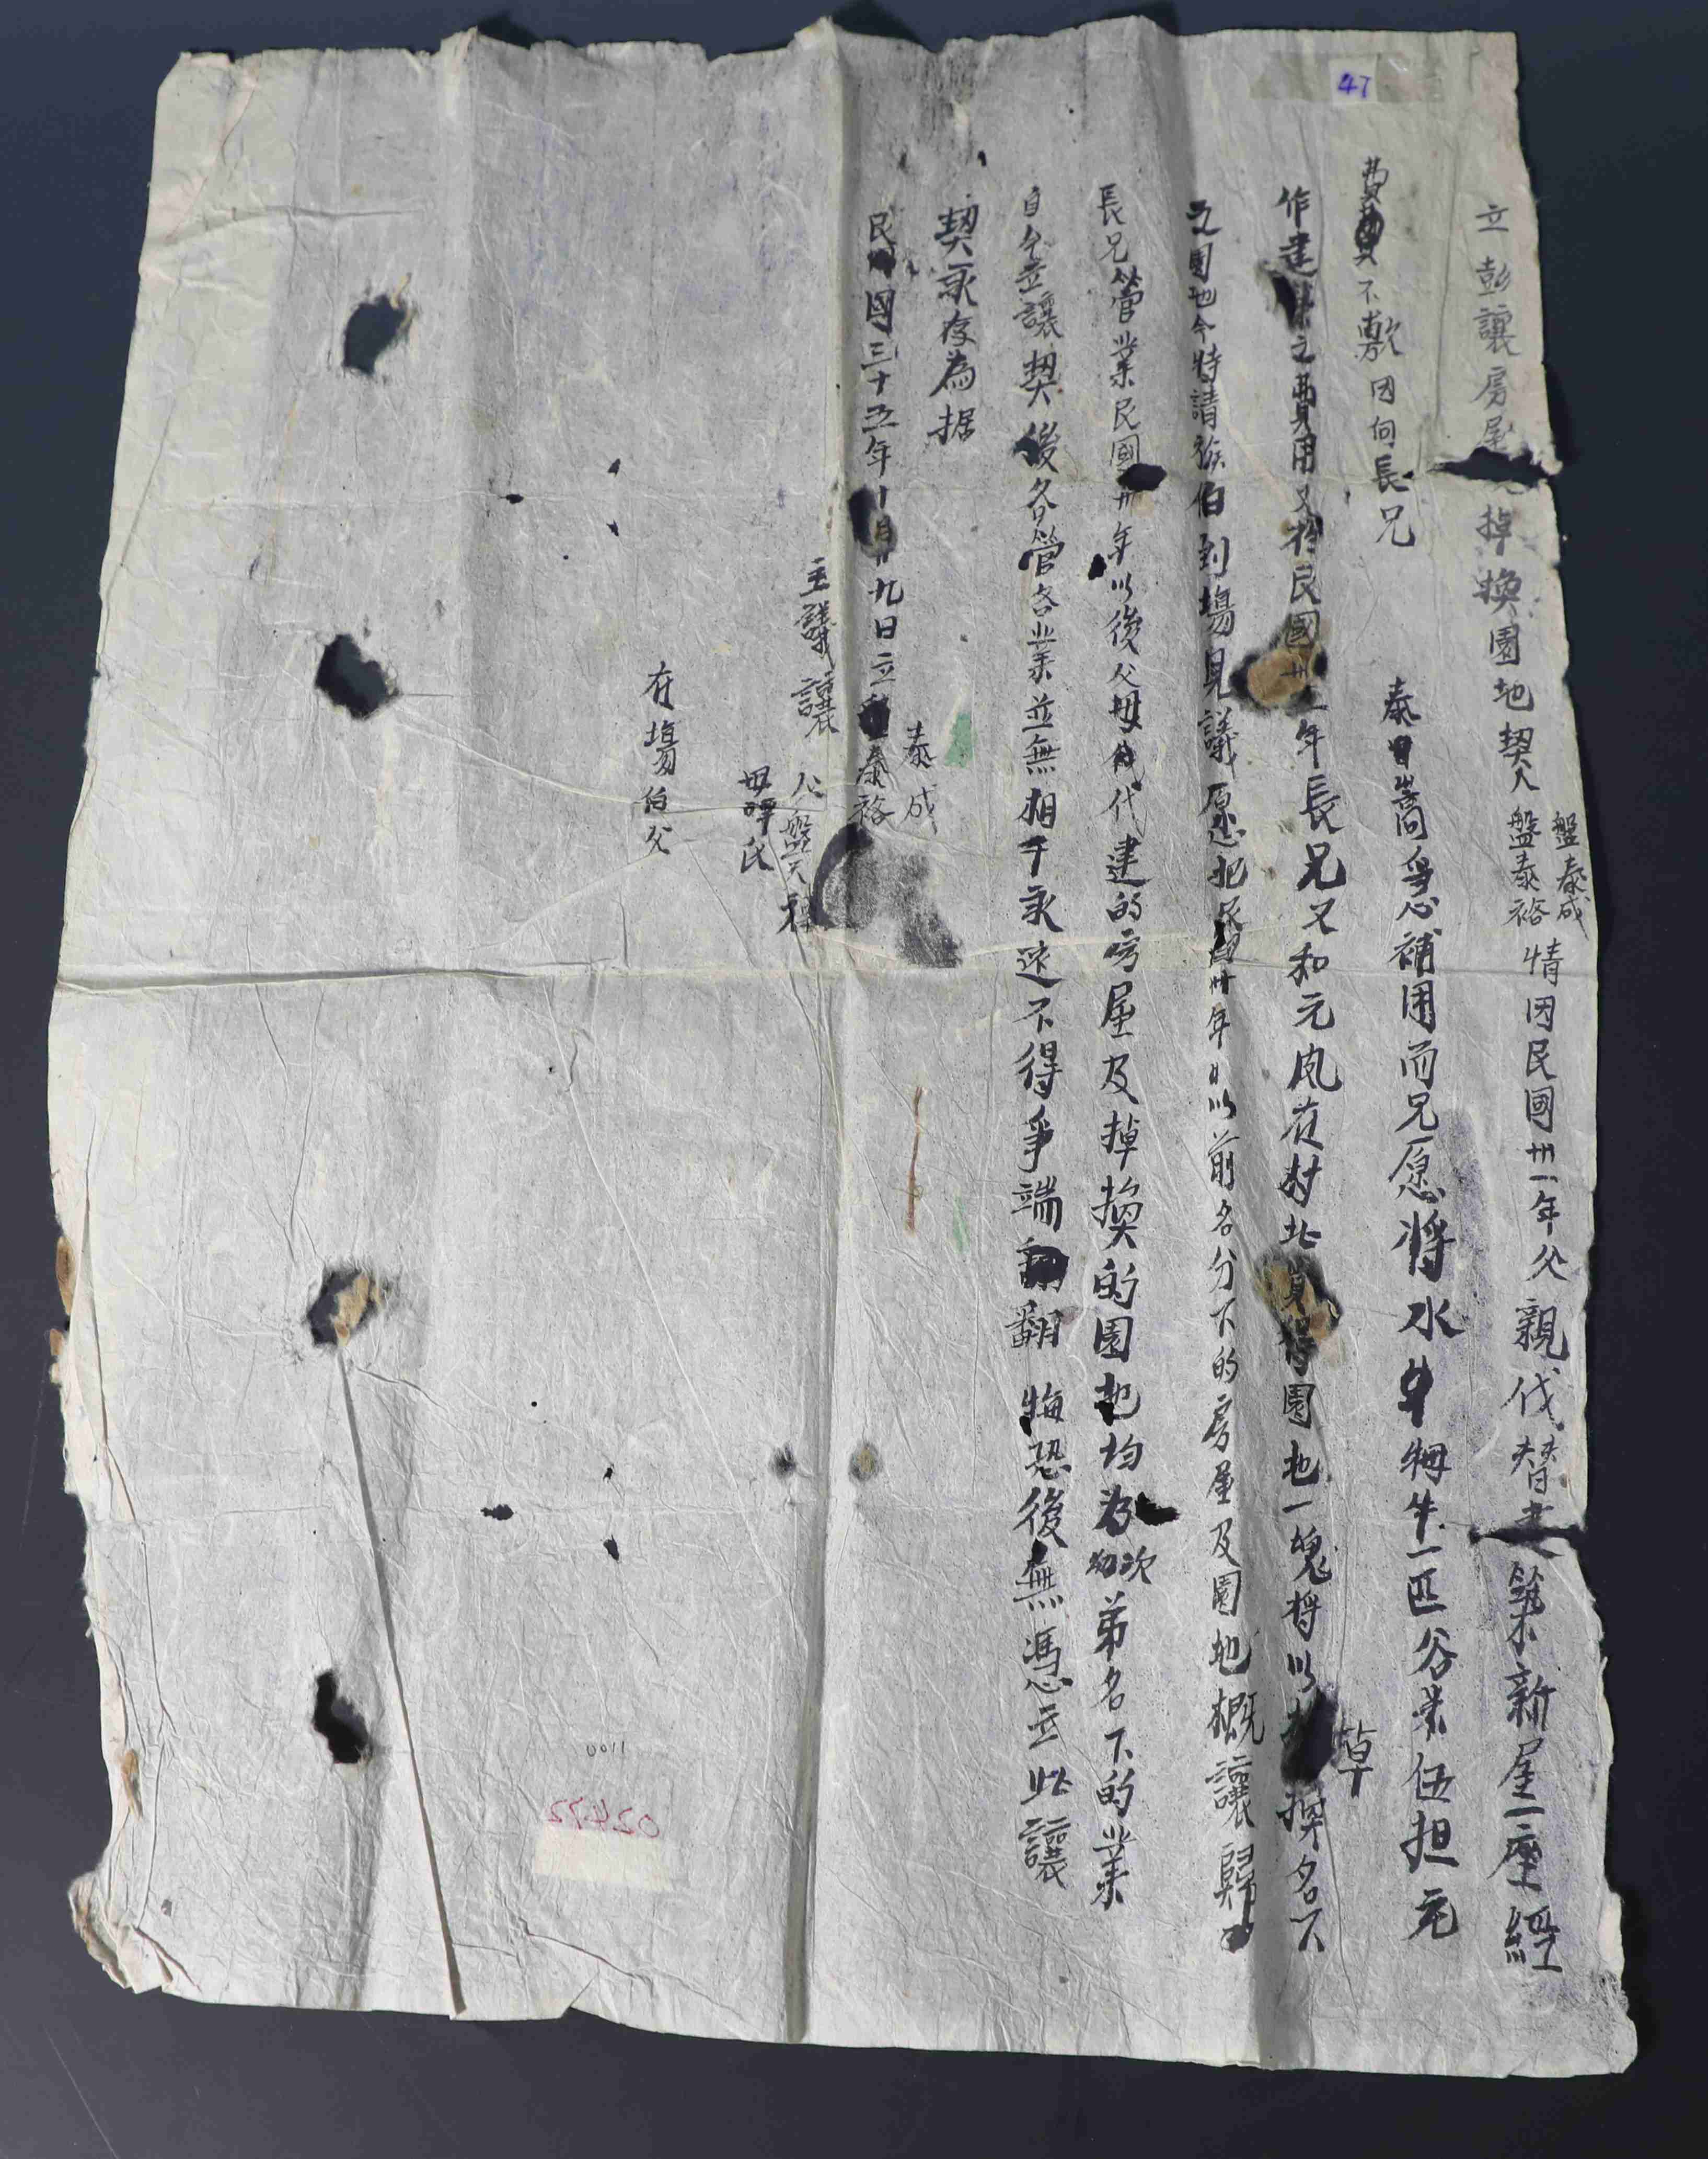 47
立彭讓房屋掉換園地契人盤泰成盤泰裕情因民國卅一年父親伐替建築新屋一座經
費不敷因向長兄泰嵩爭急補用而兄愿將水牛牳牛一匹谷米伍担元
作建築之費用又於民國卅一年長兄又和元鳳在對北園地一塊將以掉換名下
之園地今特請族伯到塲見議愿把民國卅年以前名分下的房屋及園地概讓歸
長兄營業民國卅年以後父母代建的房屋及掉換的園地均為次弟名下的業
自今立讓契後各管各業並無相干永遠不得爭端翻悔恐後無馮立此讓
契永存為据
民國三十五年十月廿九日立泰成泰裕
主議讓父盤天母譚氏
在塲伯父
1100
02472